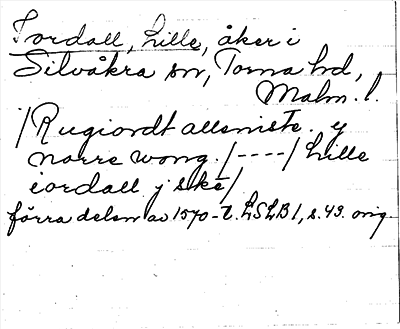 Jordall, Lille, åker i
Silvåkra sn, Torna hd,
Malm. l.
/Rugiordt allsniste. y
norre wong./----/Lille
iordall y ske/
förra delen av 1570-t. LSLB 1, s. 49. orig.